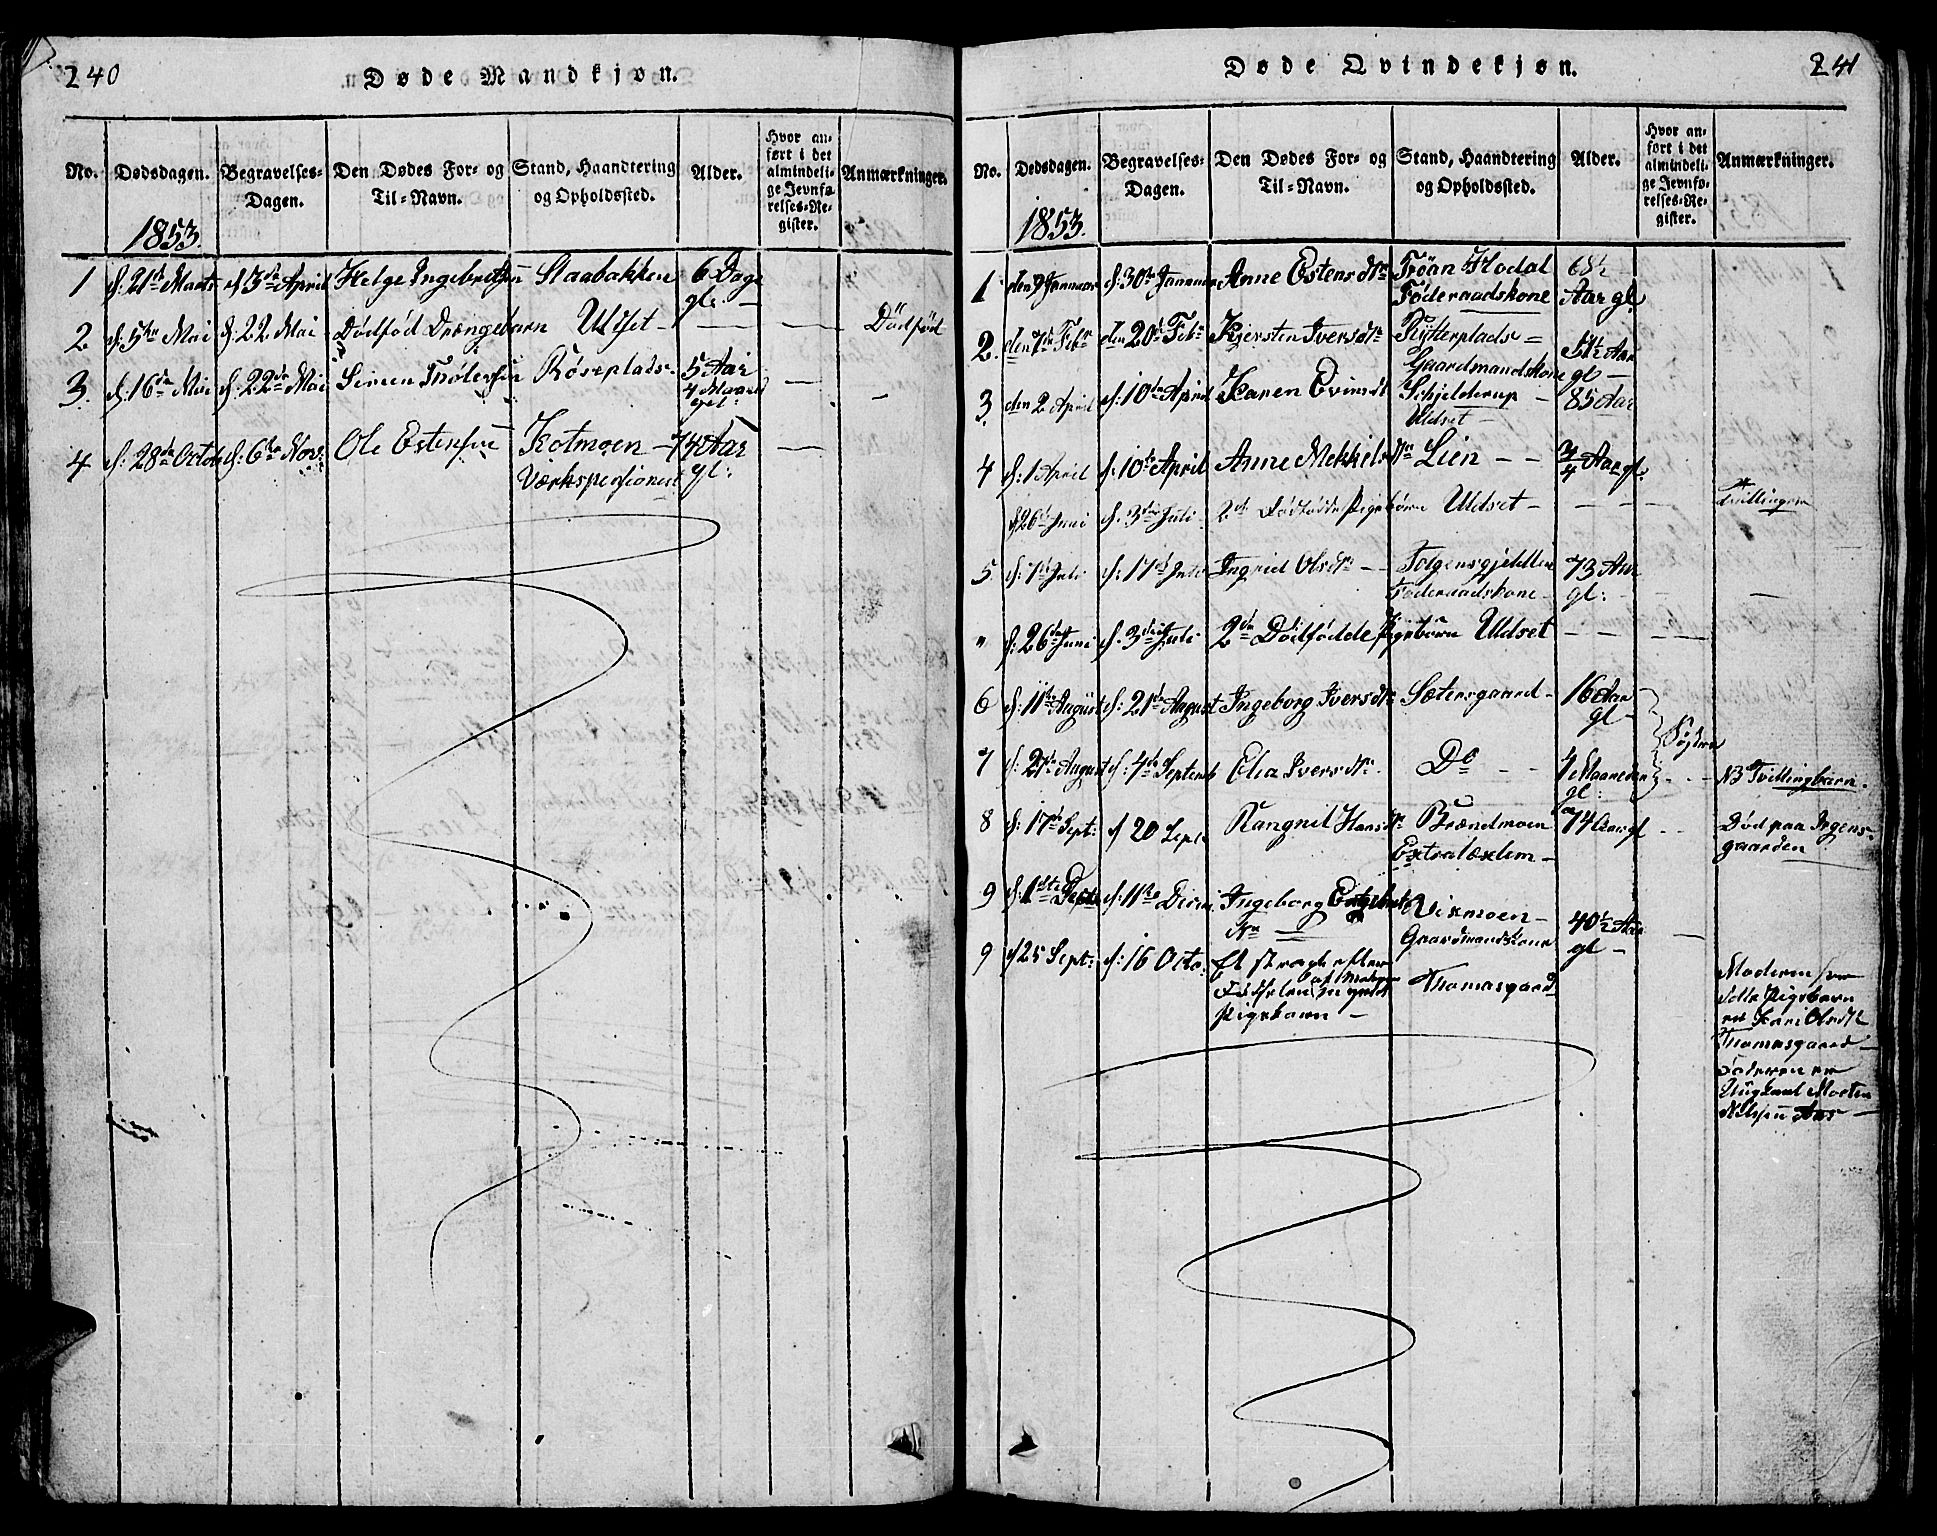 240
Døde Mandkjøn.
No.
Dødsdagen.
Begravelses-
Dagen.
Den Dødes For- og
Til-Navn.
Stand, Haandtering
og Opholdssted.
Alder.
Hvor an-
ført i det
almindeli-
ge Jevnfø-
relses-Re-
gister.
Anmærkninger.
1853.
1 d: 21de Marts d 3die April Helge Ingebretsen Staabakken 6 Dage
gl. —
2 d: 5te Mai d: 22 Mai Dødfød Drengebarn Udset - Dødfød
3. d: 16de Mai d: 22de Mai Simen Røseplads 5 Aar
4 Maaned
gl:
4 d: 28de Octob d: 6te Nov: Ole Estensen Kotmoen 74 Aar
Værkspensionist gl:
241
Døde Qvindekjøn.
No.
Dødsdagen.
Begravelses-
Dagen.
Den Dødes For- og
Til-Navn.
Stand, Haandtering
og Opholdssted.
Alder.
Hvor an-
ført i det
almindeli-
ge Jevnfø-
relses-Re-
gister.
Anmærkninger.
1853.
1 den 9 Januar d: 30te Januar Anne Estensdtr Trøan Hodal 68½
Føderaadskone Aar gl
2. den 7de Febr den 20de Febr Kjersten Iversdtr Rytterplads =
Gaardmandskone 51½ Aar gl —
3. den 2 April d: 10de April Karen Evindt Schjelderup - 85 Aar
Udset -
4 d: 1 April d: 10de April Anne Mekkelsdtr Lien - - ¾ Aar gl:
d 26de Juni d: 3die Juli 2de Dødfødte Pigebørn Udset - Tvillinger
5. d: 7de Juli d: 17de Juli Ingrid Olsdtr - Tolgensgjelten 73 Aar
Føderaadskone - gl:
" d: 26de Juni d: 3die Juli 2de Dødfødde Pigebørn Udset
6 d: 11te August d: 21de August Ingeborg Iversdtr Sætersgaard - 16 Aar
gl -
Søstre
7 d: 27de August d: 4de Septemb Elia Iversdtr. Do - - 4 Maaneder
gl: NB Tvillingbarn.
8 d: 17de Sept: d 20 Sept: Rangnil Hansdtr Brændmoen 74 Aar gl Død paa
Extralæxlem - gaarden
9 d: 1ste d: 11te Ingeborg Vixmoen -
dtr — Gaardmandskone 40½ Aar
gl -
9 d 25 Sept: d: 16 Octo. Et strax efter
Fødselen
Pigebarn - Thomasgaard
Moderen
Pigebarn
er Kari Olsdtr
Thomasgaard -
Faderen er
Ungkarl Morten
Nilsen Aas —